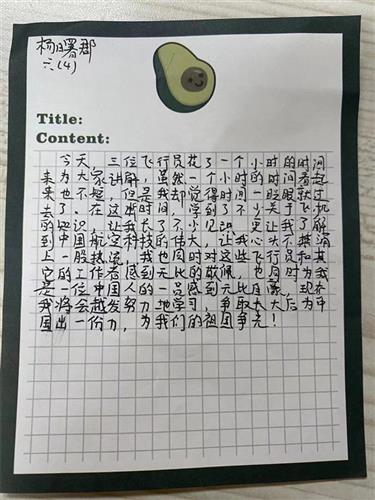 杨曙郡
六(4)
Title:
Content:
今天,三位飞行员花了一个小时的时间
来为大家讲解,虽然一个小时的时间看起
来也不短,但是我却觉得时间一眨眼就过
去了。在这段时间,学到了不少关于飞机
的知识,让我长了不少见识,更让我了解
到中国航空科技的伟大,让我心头不禁涌
上一股热流,我也同时对这些飞行员和其
它的工作者感到无比的敬佩,也同时为我
是一位中国人的一员感到无比自豪,现在
我将会越发努力地学习,争取长大后为中
国出一份力,为我们的祖国争光!